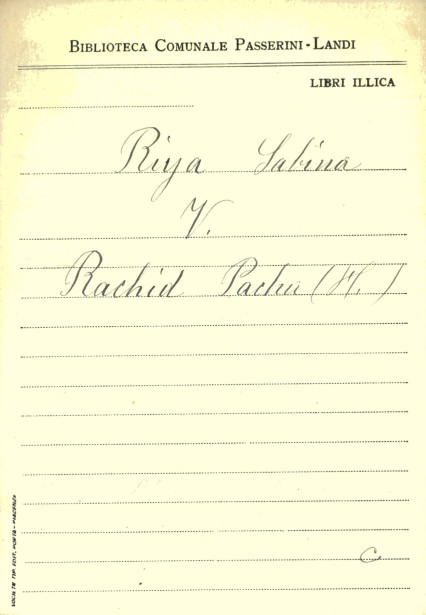 BIBLIOTECA COMUNALE PASSERINI-LANDI
LIBRI ILLICA
Riya Sabina
V.
Rachid Pacha (H.)
C